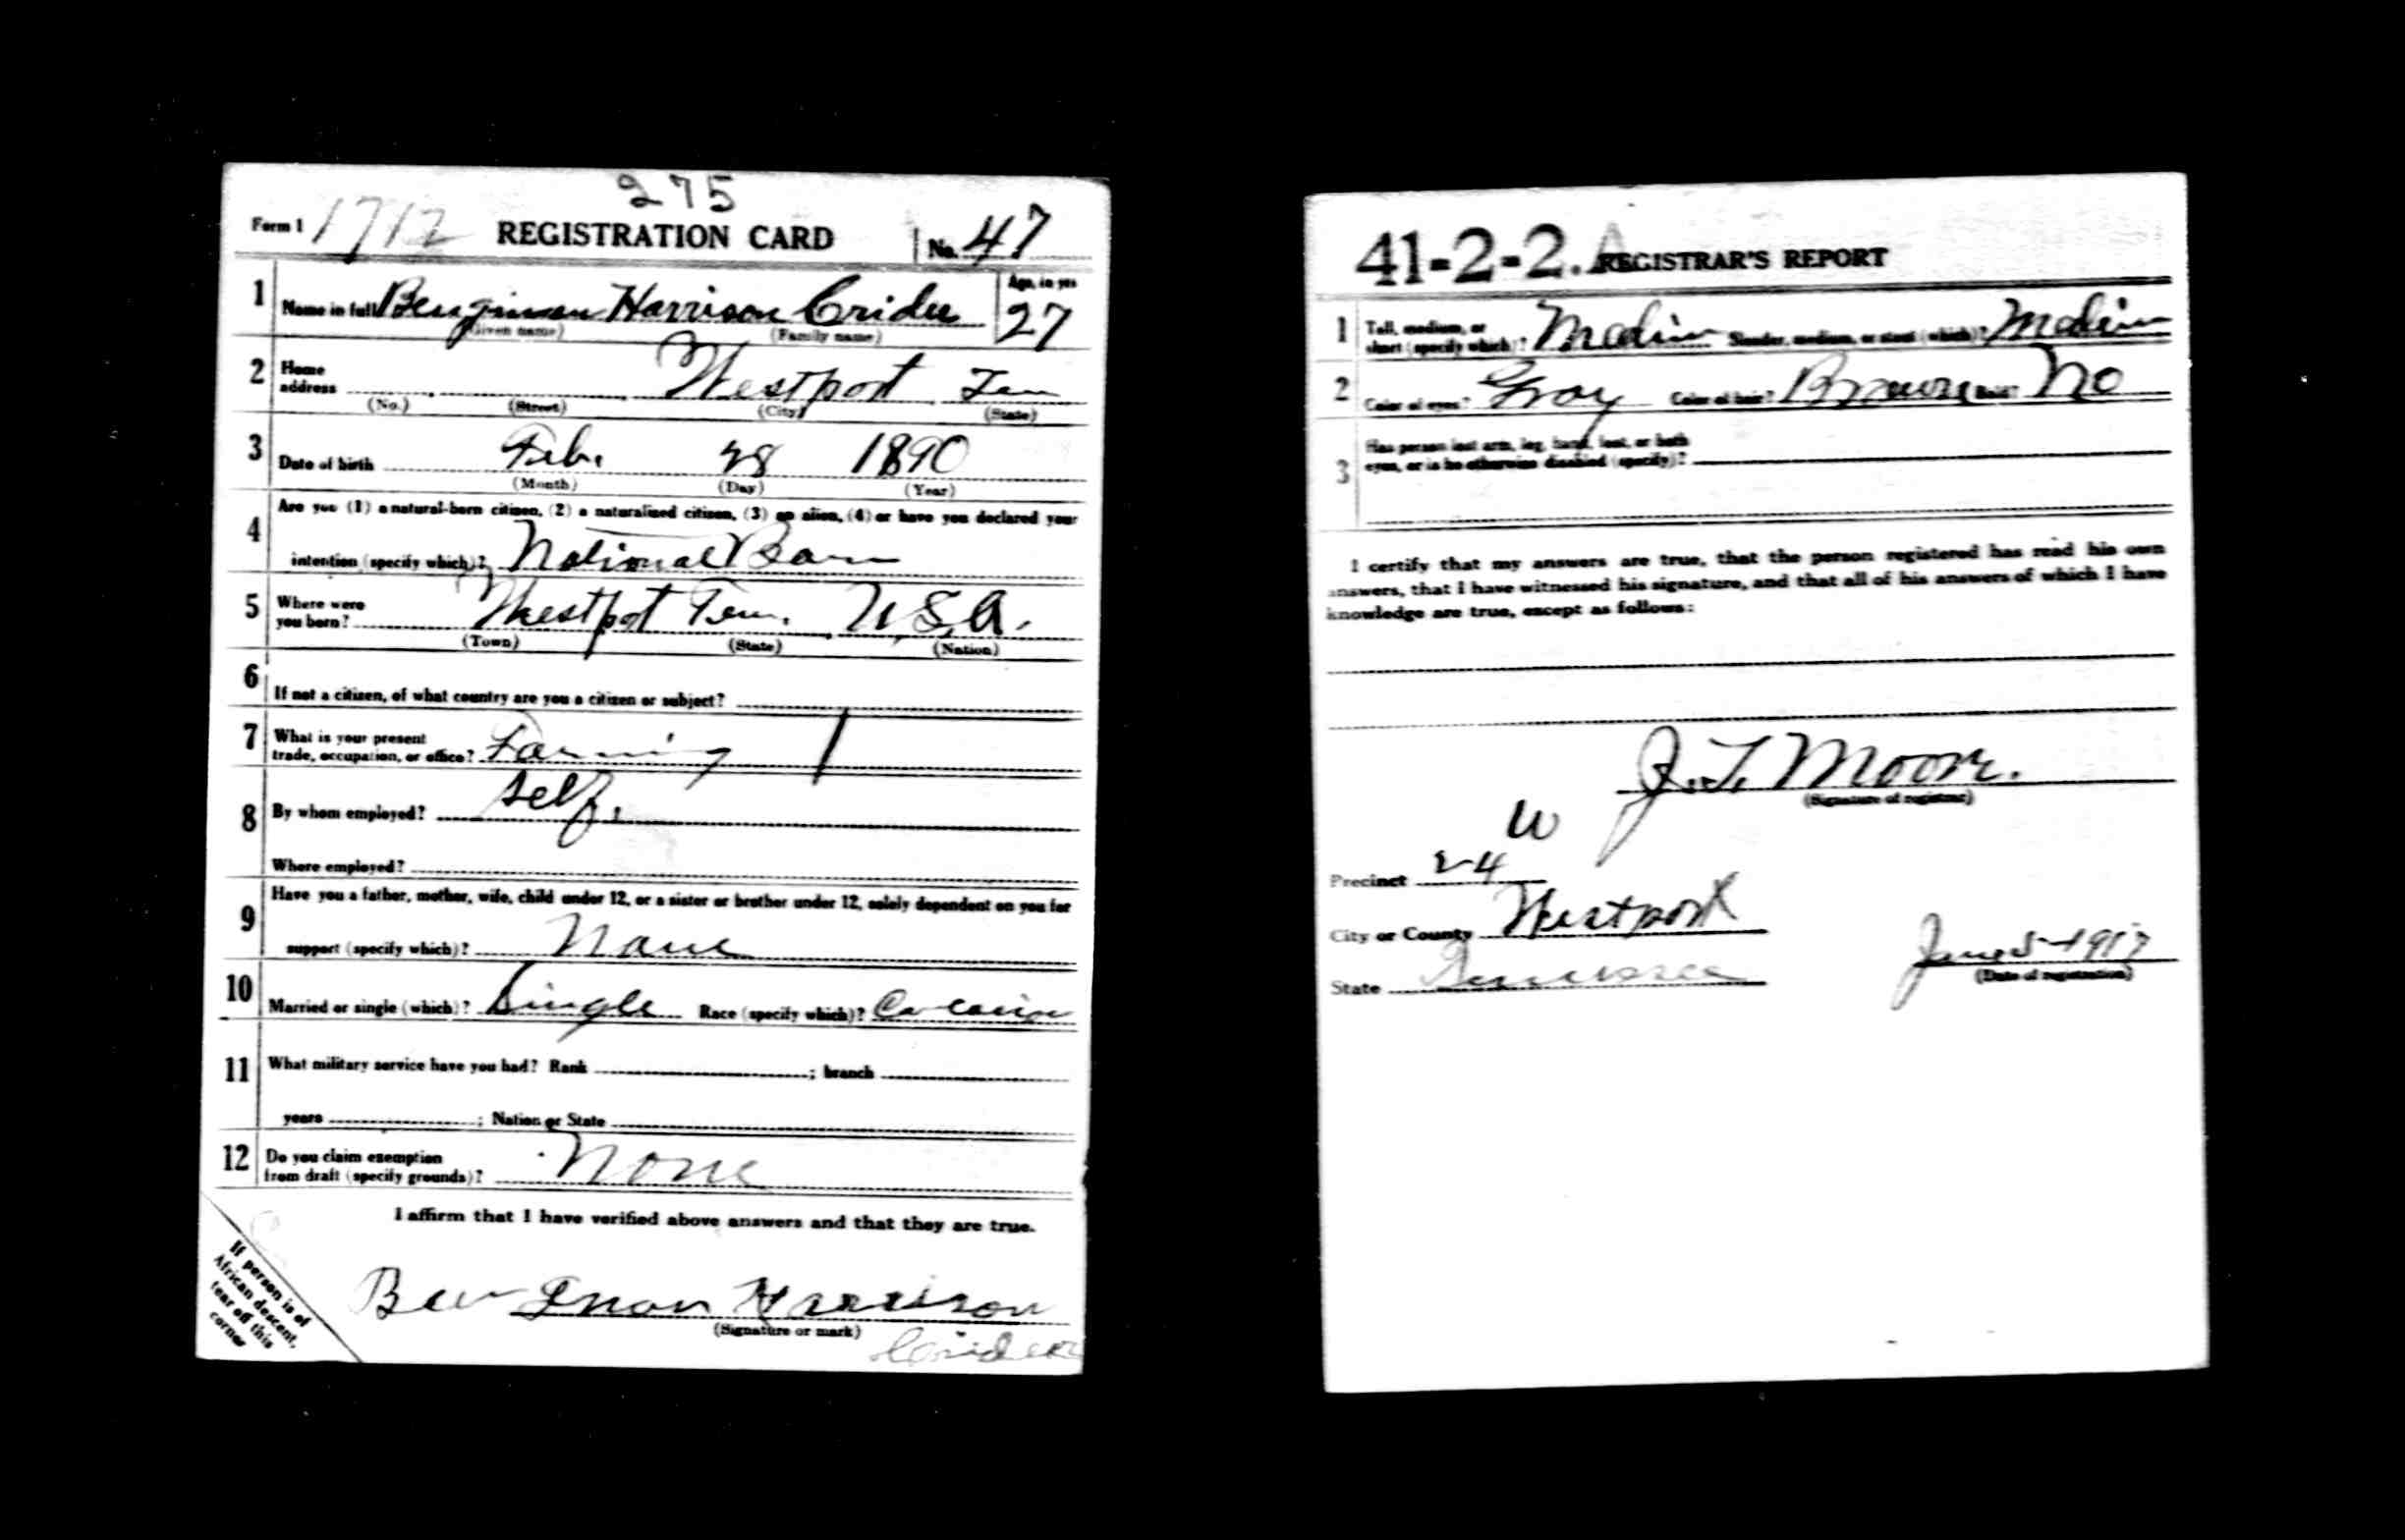 275
Form 1 1712 REGISTRATION CARD No. 47
1 Name in full Bengimen Harrison Crider Age, in yrs 27
(Given name) (Family name)
2 Home address Westport Ten
(No.) (Street) (City) (State)
3 Date of birth Feb. 28 1890
(Month) (Day) (Year)
4 Are you (1) a natural-born citizen, (2) a naturalized citizen, (3) an alien, (4) or have you declared your
intention (specify which)? National Born
5 Where were you born? Westport Ten. U.S.A.
(Town) (State) (Nation)
6 If not a citizen, of what country are you a citizen or subject?
7 What is your present trade, occupation, or office? Farming
8 By whom employed? self.
Where employed?
9 Have you a father, mother, wife, child under 12, or a sister or brother under 12, solely dependent on you for
support (specify which)? None
10 Married or single (which)? Single Race (specify which)?
11 What military service have you had? Rank ; branch
years ; Nation or State
12 Do you claim exemption from draft (specify grounds)? None
I affirm that I have verified above answers and that they are true.
If person is of
African descent,
tear off this
corner
Harrison
(Signature or mark)
Crider
41-2-2. A REGISTRAR'S REPORT
1 Tall, medium, or short (specify which)? Medim Slender, medium, or stout (which)? Medim
2 Color of eyes? Gray Color of hair? Brown Bald? No
3 Has person lost arm, leg, hand, foot, or both
eyes, or is he otherwise disabled (specify)?
I certify that my answers are true, that the person registered has read his own
answers, that I have witnessed his signature, and that all of his answers of which I have
knowledge are true, except as follows:
J. T. Moore.
(Signature of registrar)
W
Precinct 24
City or County Westport
State Tennessee June 5-1917
(Date of registration)